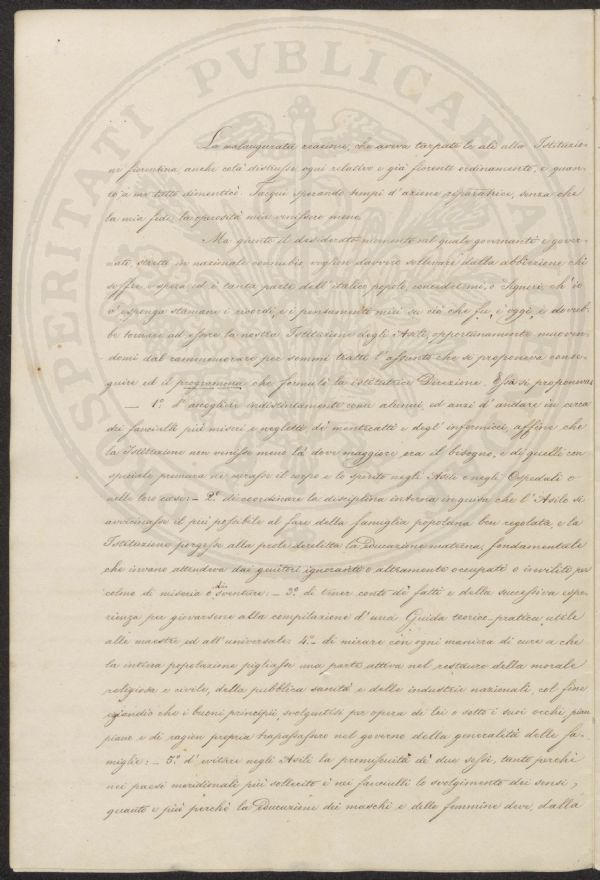 La malaugurata reazione, che aveva tarpate le ali alla Istituzio-
ne fiorentina, anche colà distrusse ogni relativo e già fiorente ordinamento, e quan-
to a me tutto dimenticò. Tacqui sperando tempi d'azione riparatrice, senza che
la mia fede, la operosità mia venissero meno.
Ma giunto il desiderato momento nel quale governanti e gover-
nati, stretti in nazionale connubio voglion davvero sollevare dalla abbiezione chi
soffre e spera ed è tanta parte dell'italico popolo, concedetemi, o Signori, ch'io
v'esponga stamane i ricordi, e i pensamenti miei su ciò che fu, è oggi, e dovreb-
be tornare ad essere la nostra Istituzione degli Asili, opportunamente muoven-
domi dal rammemorare per sommi tratti l'assunto che si proponeva conse-
guire ed il programma che formulò la istitutrice Direzione. Essa si proponeva:
— 1.° d'accogliere indistintamente come alunni, ed anzi d'andare in cerca
dei fanciulli più miseri e negletti, di mentecatti e degl'infermicci, affine che
la Istituzione non venisse meno là dove maggiore era il bisogno, e di quelli con
speciale premura ne curasse il corpo e lo spirito negli Asili e negli Ospedali o
nelle loro case: — 2.° di coordinare la disciplina interna in guisa che l'Asilo si
avvicinasse il più possibile al fare della famiglia popolana ben regolata, e la
Istituzione porgesse alla prole derelitta la Educazione materna, fondamentale
che invano attendeva dai genitori ignoranti o altramente occupati o inviliti per
colmo di miseria o di sventure: — 3.° di tener conto de' fatti e della successiva espe-
rienza per giovarsene alla compilazione d'una Guida teorico-pratica utile
alle maestre ed all'universale: 4.° — di mirare con ogni maniera di cure a che
la intiera popolazione pigliasse una parte attiva nel restauro della morale
religiosa e civile, della pubblica sanità e delle industrie nazionali, col fine
eziandio che i buoni principii, svolgentisi per opera di lei o sotto i suoi occhi pian
piano e di ragion propria trapassassero nel governo della generalità delle fa-
miglie: — 5.° d'evitare negli Asili la promiscuità de' due sessi, tanto perchè
nei paesi meridionali più sollecito è nei fanciulli lo svolgimento dei sensi,
quanto e più perchè la Educazione dei maschi e delle femmine deve, dalla
PVBLICAE